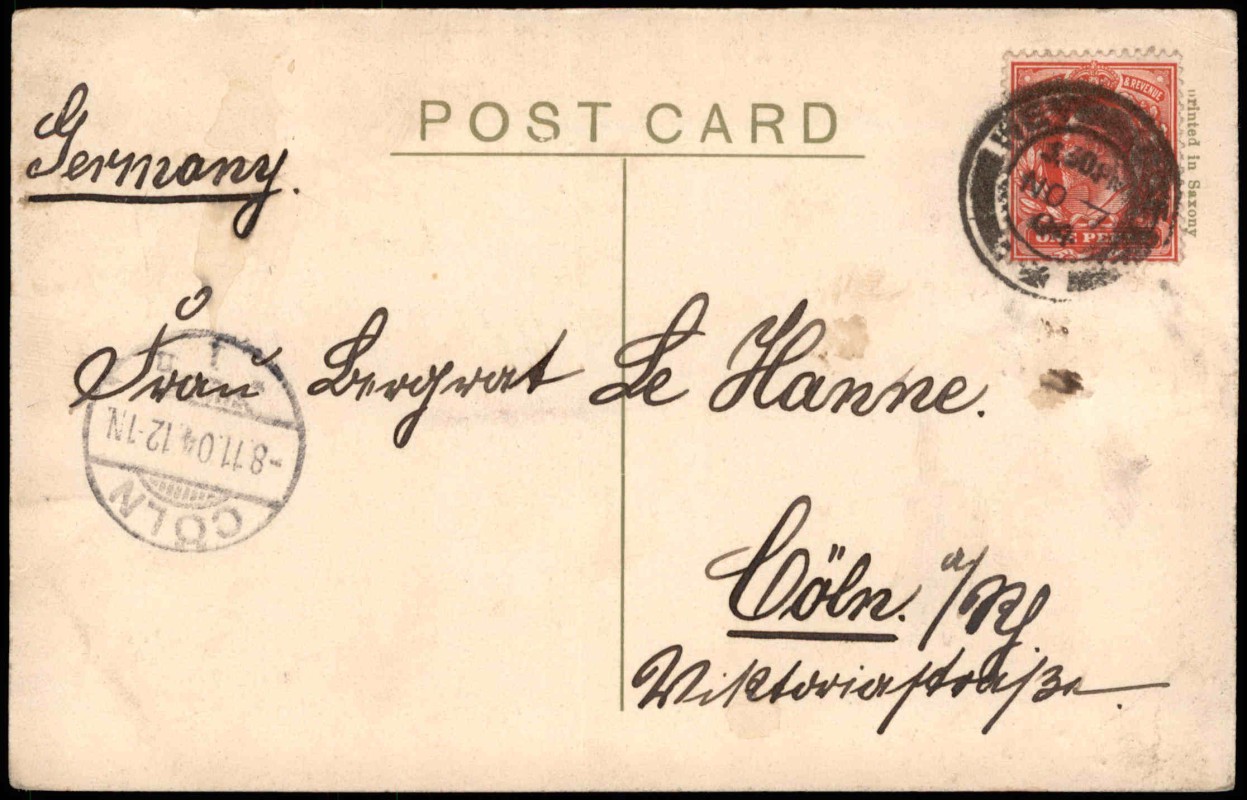 POST CARD
& REVENUE
ONE PENNY
3.30.PM
NO 7
04
Printed in Saxony
Germany.
Frau Bergrat Le Hanne.
Cöln. a/Rh
Viktoriastraße.
CÖLN
-8.11.04.12-1N